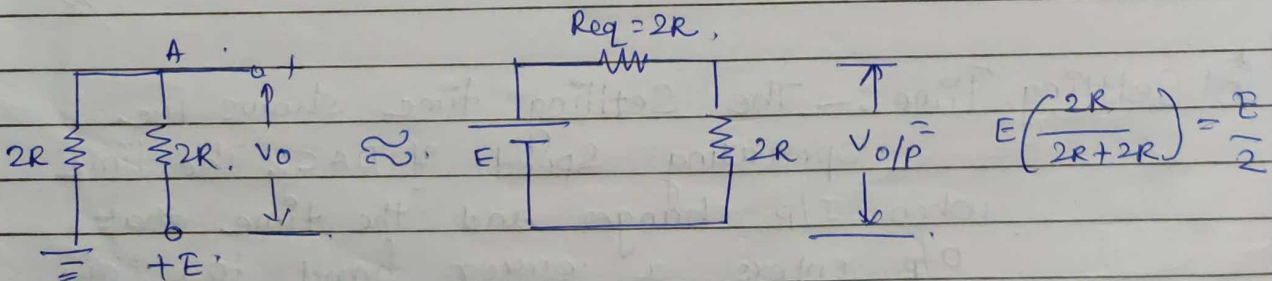 Req = 2R,
A . +
2R 2R. VO ≈. E 2R Vo/p = E(2R/(2R+2R)) = E/2
+E